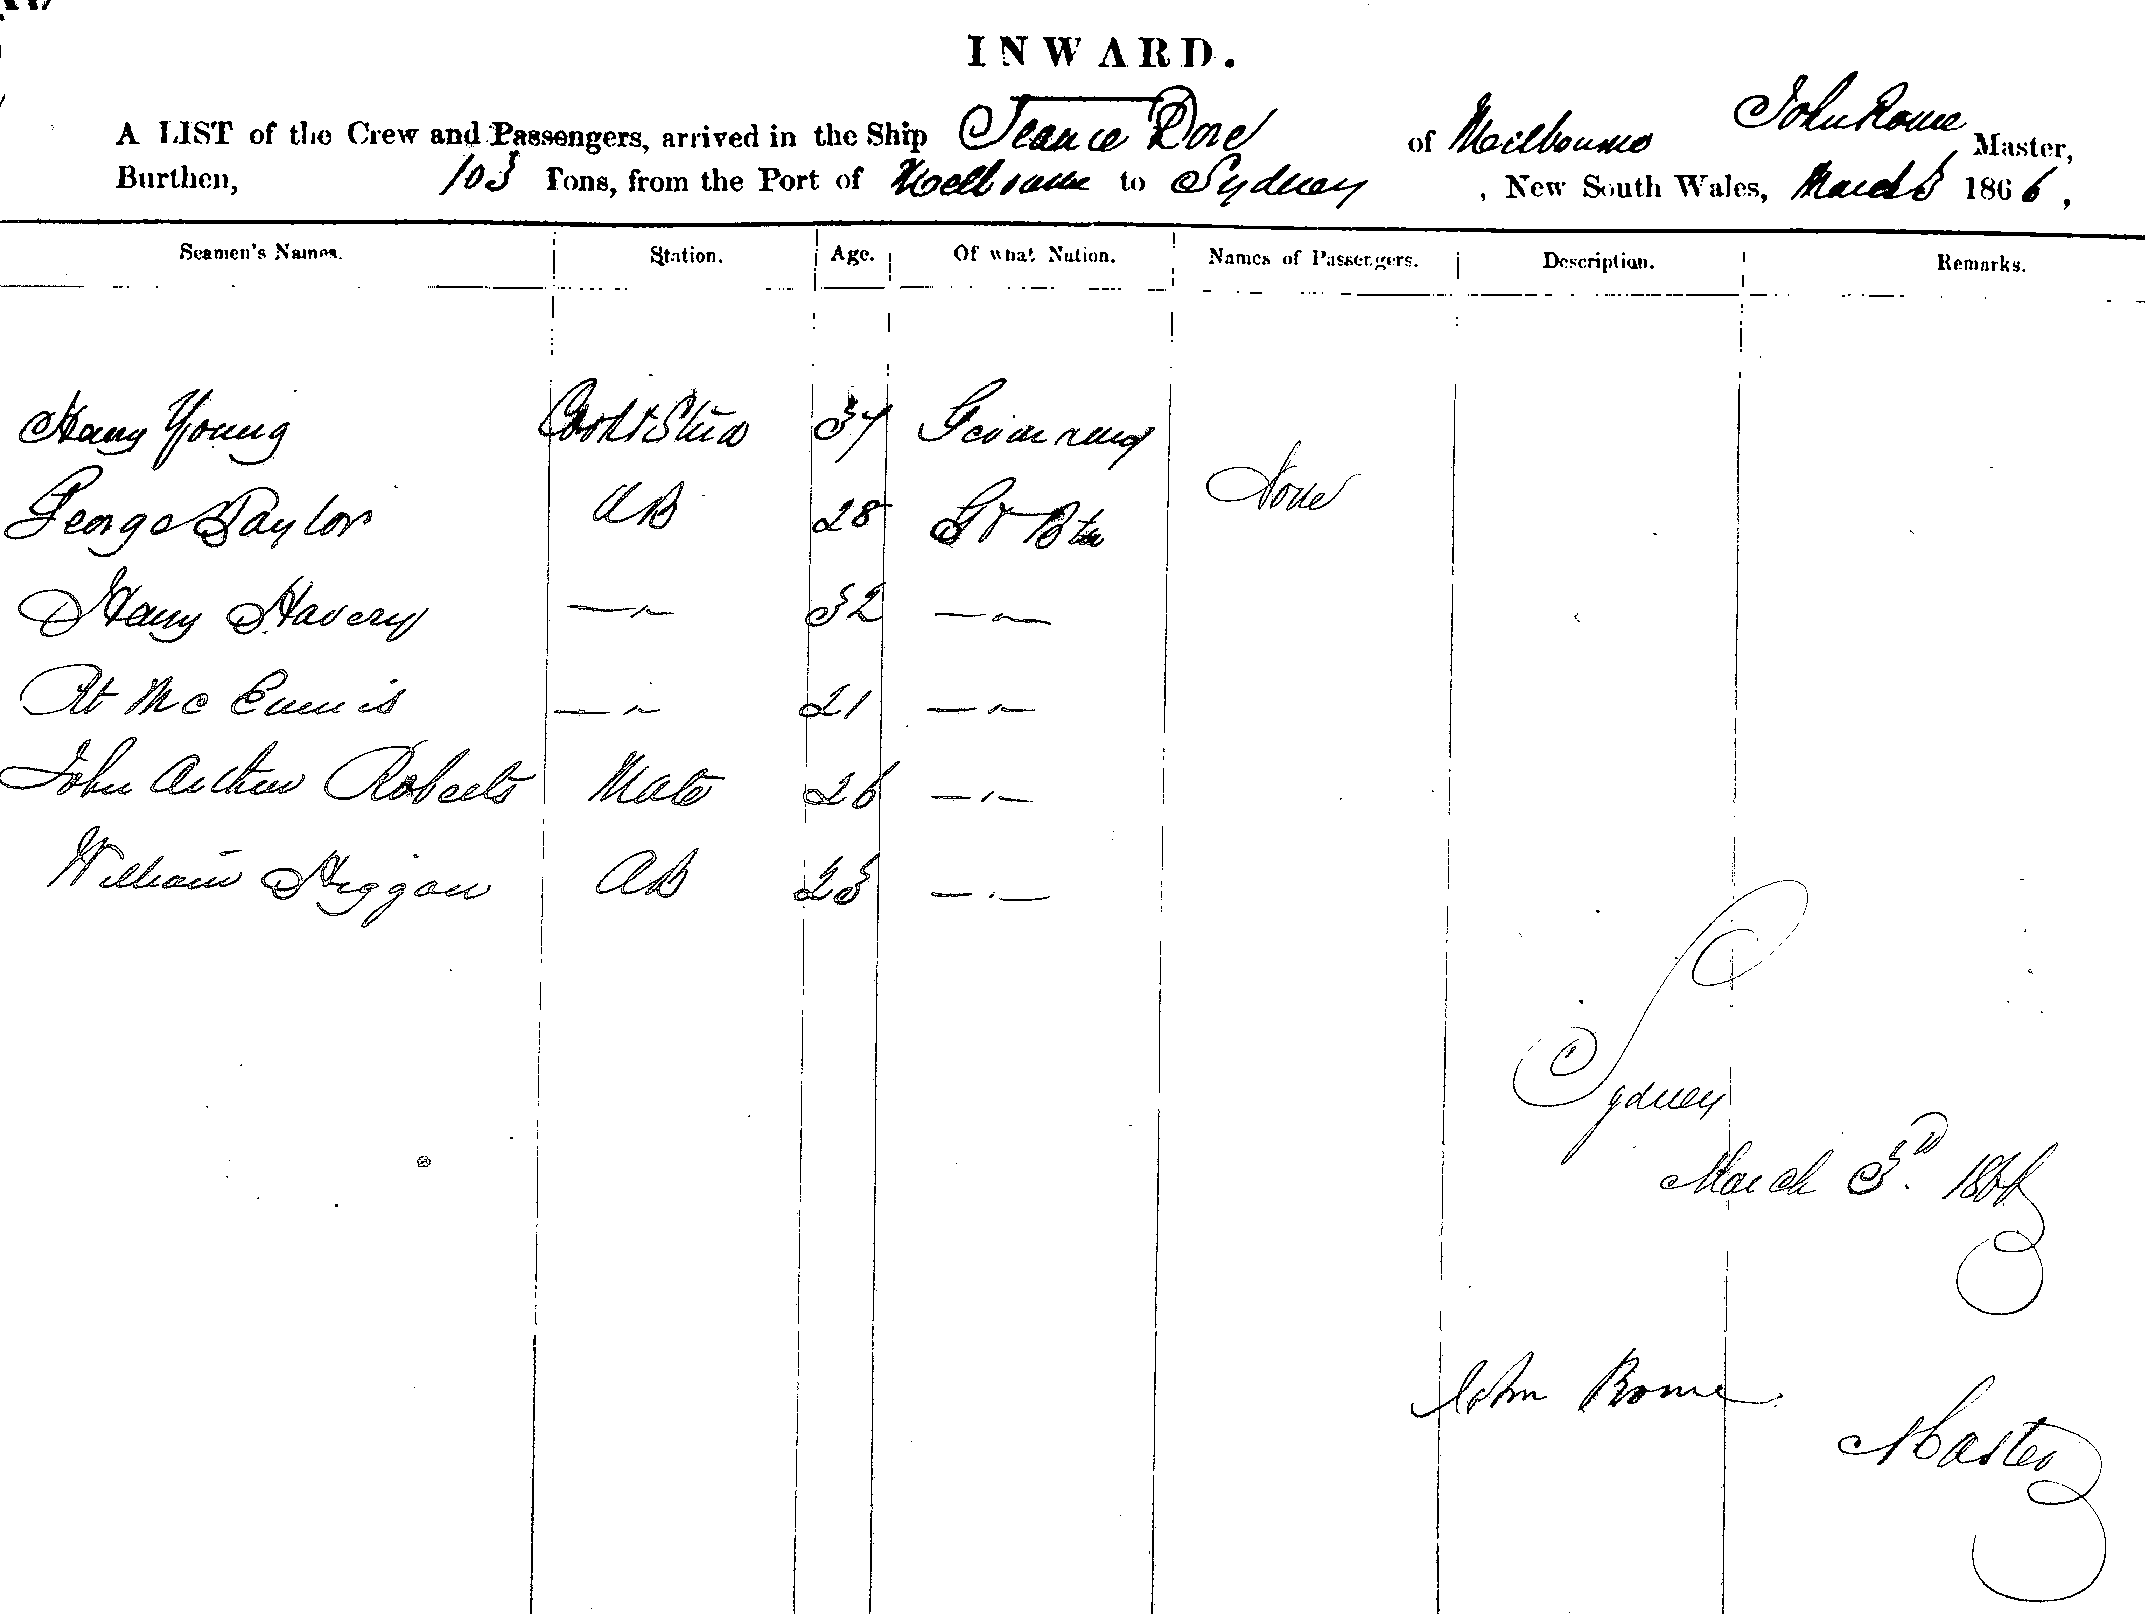 INWARD.
A LIST of the Crew and Passengers, arrived in the Ship Jeanie Dove of Melbourne John Rome Master,
Burthen, 103 Tons, from the Port of Melbourne to Sydney , New South Wales, March 3 1866,
Seamen's Names. Station. Age. Of what Nation. Names of Passengers. Description. Remarks.
Harry Young Cook & Stwd 34 Germany
None
George Taylor AB 28 Gt Btn
Harry Havery —"— 32 —"—
Rt Mc Ennis —"— 21 —"—
John Arthur Roberts Mate 26 —"—
William Higgan AB 23 —"—
Sydney
March 3rd 1866
John Rome
Master